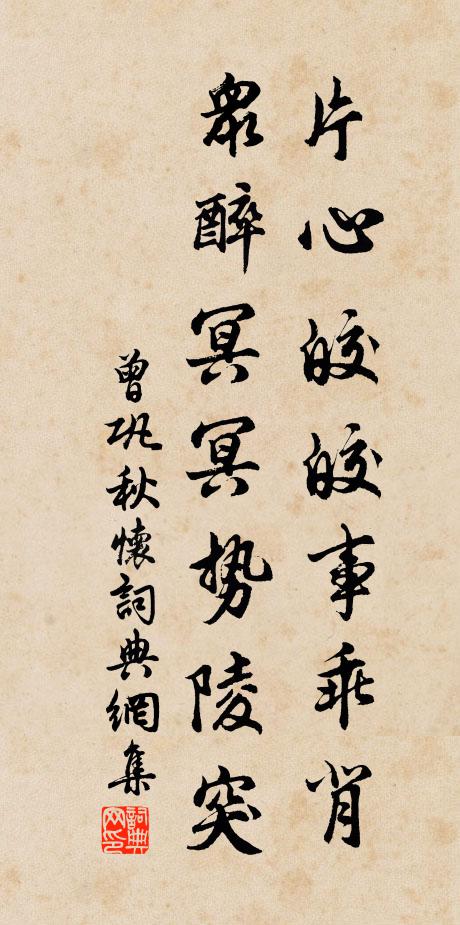 片心皎皎事乖肖
眾醉冥冥勢陵突
曾巩秋懷詞典網集
詞典网印